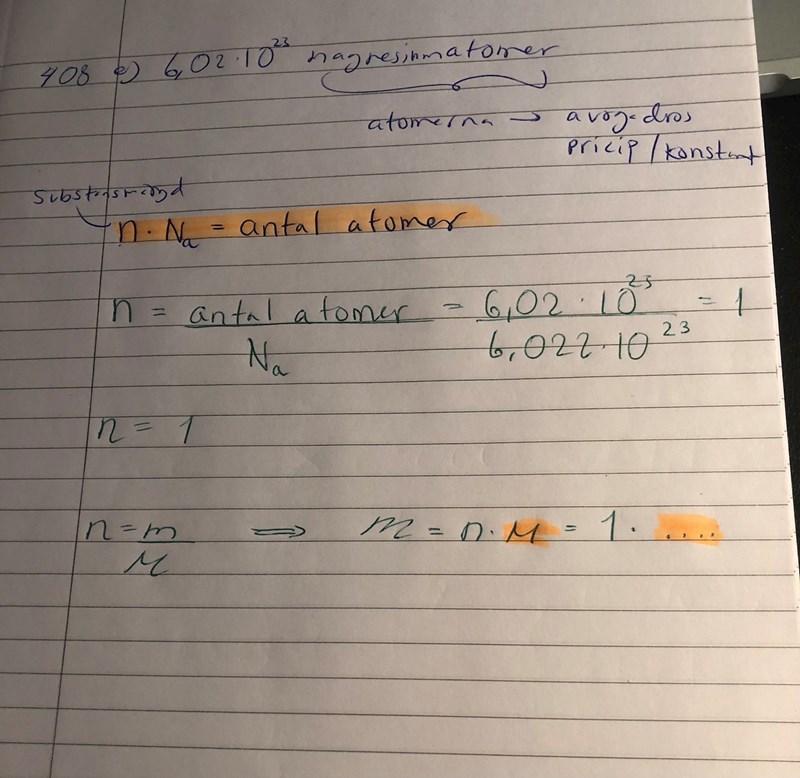 408 e) 6,02·10²³ magnesiumatomer
atomerna → avogadros
pricip / konstant
Substansmängd
n · Nₐ = antal atomer
n = antal atomer / Nₐ = 6,02 · 10²³ / 6,022·10²³ = 1
n = 1
n = m / M ⟹ m = n · M = 1 · ....